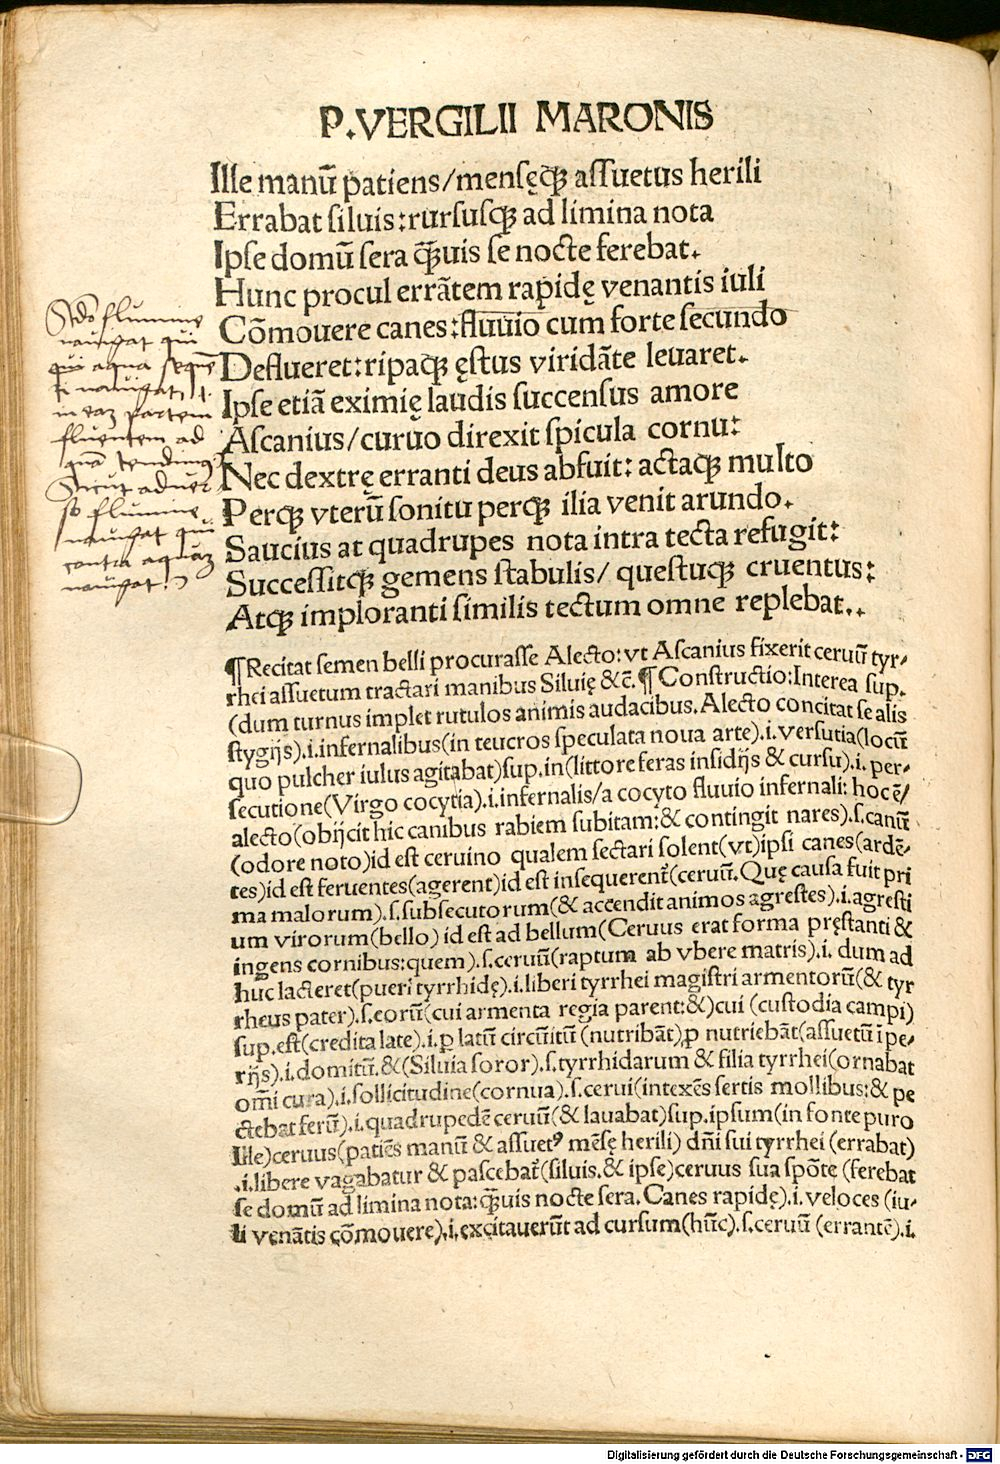 P.VERGILII MARONIS
Ille manū patiens/mensęq̃ assuetus herili
Errabat siluis:rursusq̃ ad limina nota
Ipse domū sera q̃uis se nocte ferebat.
Hunc procul errātem rapidę venantis iuli
Cōmouere canes:fluuio cum forte secundo
Deflueret:ripaq̃ ęstus viridāte leuaret.
Ipse etiā eximię laudis succensus amore
Ascanius/curuo direxit spicula cornu:
Nec dextrę erranti deus abfuit: actaq̃ multo
Perq̃ vterū sonitu perq̃ ilia venit arundo.
Saucius at quadrupes nota intra tecta refugit:
Successitq̃ gemens stabulis/ questuq̃ cruentus:
Atq̃ imploranti similis tectum omne replebat..
Scdo flumine
nauigat qui
qui aqua seque
ti nauigat, i.
in eaz partem
fluentem ad
quā tendimus
Sicut aduer
so flumine
nauigat qui
contra aquaz
nauigat.
¶Recitat semen belli procurasse Alecto: vt Ascanius fixerit ceruū tyr-
rhei assuetum tractari manibus Siluię &c̄.¶Constructio:Interea sup.
(dum turnus implet rutulos animis audacibus.Alecto concitat se alis
stygijs).i.infernalibus(in teucros speculata noua arte).i.versutia(locū
quo pulcher iulus agitabat)sup.in(littore feras insidijs & cursu).i.per-
secutione(Virgo cocytia).i.infernalis/a cocyto fluuio infernali: hoc ē/
alecto(obijcit hic canibus rabiem subitam:& contingit nares).s.canū
(odore noto)id est ceruino qualem sectari solent(vt)ipsi canes(ardē-
tes)id est feruentes(agerent)id est insequerent̃(ceruū.Quę causa fuit pri
ma malorum).s.subsecutorum(& accendit animos agrestes).i.agresti
um virorum(bello) id est ad bellum(Ceruus erat forma pręstanti &
ingens cornibus:quem).s.ceruū(raptum ab vbere matris).i. dum ad
huc lacteret(pueri tyrrhidę).i.liberi tyrrhei magistri armentorū(& tyr
rheus pater).s.eorū(cui armenta regia parent:&)cui (custodia campi)
sup.est(credita late).i.p latū circūitū (nutribāt),p nutriebāt(assuetū īpe-
rijs).i.domitū.&(Siluia soror).s.tyrrhidarum & filia tyrrhei(ornabat
om̄i cura).i.sollicitudine(cornua).s.cerui(intexēs sertis mollibus:& pe
ctebat ferū).i.quadrupedē ceruū(& lauabat)sup.ipsum(in fonte puro
Ille)ceruus(patiēs manū & assuetꝰ mēsę herili) dn̄i sui tyrrhei (errabat)
.i.libere vagabatur & pascebat̃(siluis.& ipse)ceruus sua spōte (ferebat
se domū ad limina nota:q̃uis nocte sera. Canes rapidę).i. veloces (iu-
li venātis cōmouere).i.excitauerūt ad cursum(hūc).s.ceruū (errantē).i.
Digitalisierung gefördert durch die Deutsche Forschungsgemeinschaft - DFG